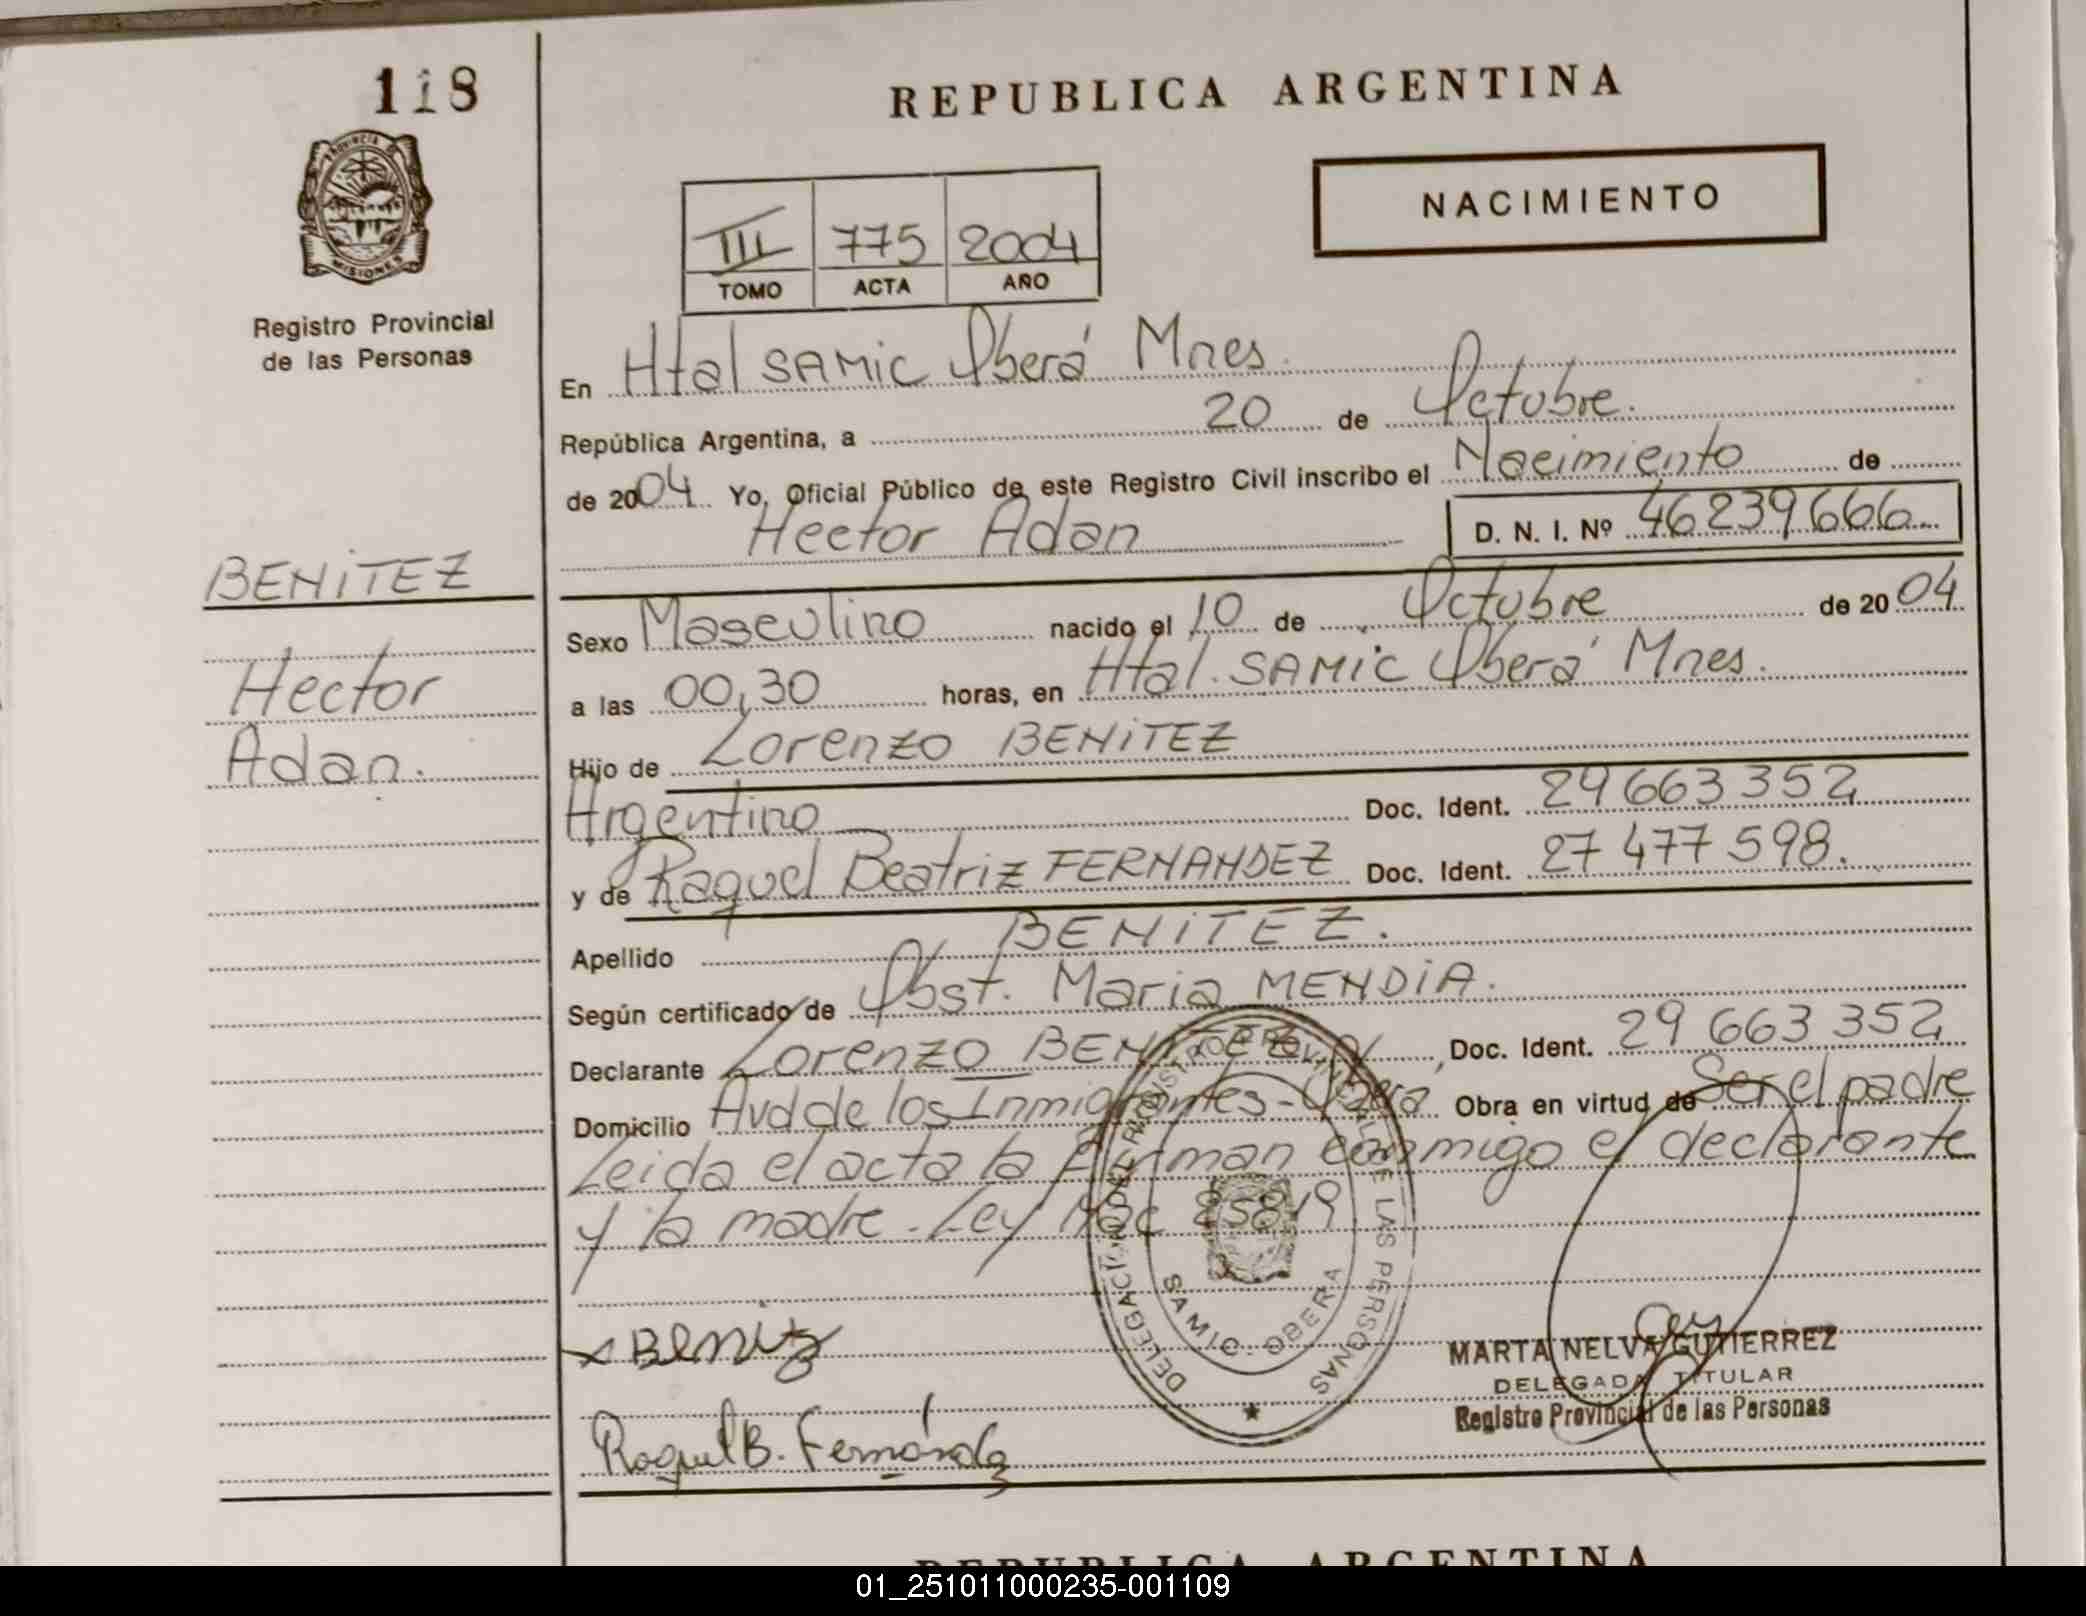 118
PROVINCIA DE
MISIONES
Registro Provincial
de las Personas
BENITEZ
Hector
Adan.
REPUBLICA ARGENTINA
NACIMIENTO
III 775 2004
TOMO ACTA AÑO
En Htal SAMIC Oberá Mnes.
República Argentina, a 20 de Octubre.
de 2004 Yo, Oficial Público de este Registro Civil inscribo el Nacimiento de
Hector Adan D. N. I. Nº 46239666
Sexo Masculino nacido el 10 de Octubre de 2004
a las 00,30 horas, en Htal. SAMIC Oberá Mnes.
Hijo de Lorenzo BENITEZ
Argentino Doc. Ident. 29 663 352
y de Raquel Beatriz FERNANDEZ Doc. Ident. 27 477 598.
Apellido BENITEZ.
Según certificado de Obst. Maria MENDIA.
Declarante Lorenzo BENITEZ, Doc. Ident. 29 663 352
Domicilio Avd de los Inmigrantes - Oberá Obra en virtud de Ser el padre
Leida el acta la firman conmigo el declarante
y la madre. Ley Nac 25819
DELEGACION DEL REGISTRO PROVINCIAL DE LAS PERSONAS
SAMIC - OBERA
x Benitez
Raquel B. Fernández
MARTA NELVA GUTIERREZ
DELEGADA TITULAR
Registro Provincial de las Personas
REPUBLICA ARGENTINA
01_251011000235-001109